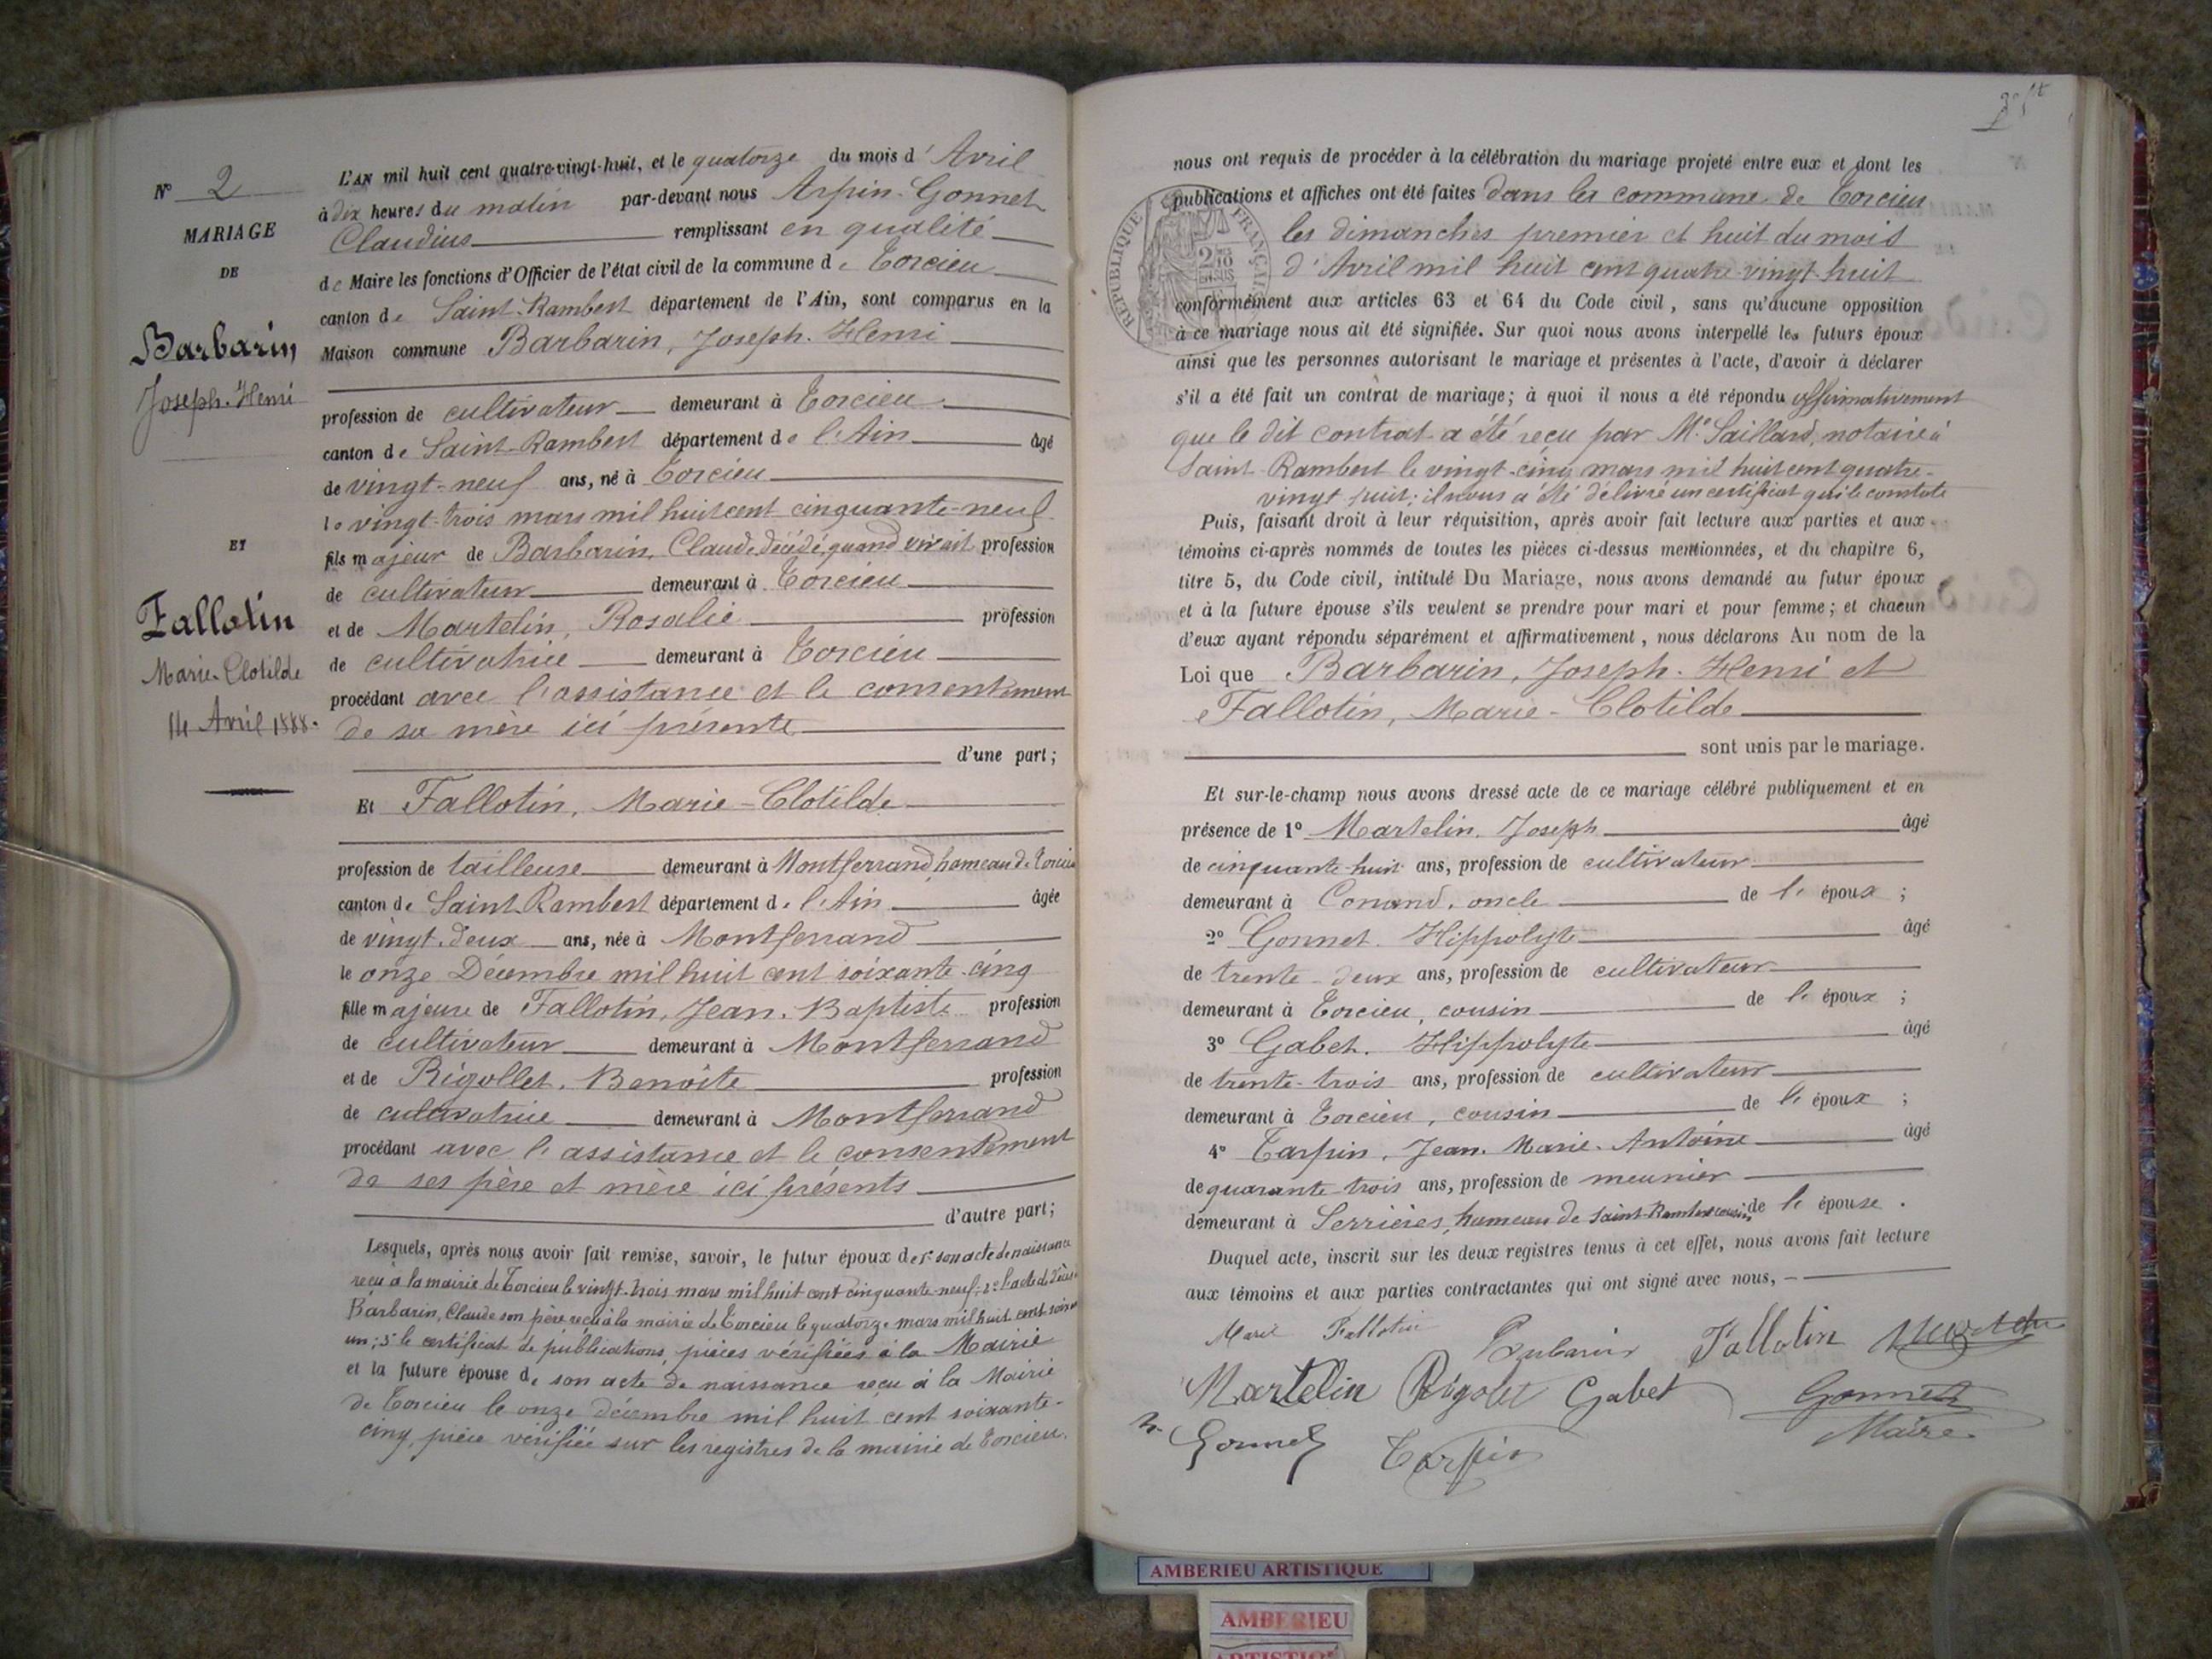 N° 2
MARIAGE
DE
Barbarin
Joseph-Henri
ET
Fallotin
Marie-Clotilde
14 Avril 1888.
L'AN mil huit cent quatre-vingt-huit, et le quatorze du mois d'Avril
à dix heures du matin par-devant nous Arpin-Gonnet
Claudius remplissant en qualité
de Maire les fonctions d'Officier de l'état civil de la commune de Torcieu
canton de Saint-Rambert département de l'Ain, sont comparus en la
Maison commune Barbarin, Joseph-Henri
profession de cultivateur demeurant à Torcieu
canton de Saint-Rambert département de l'Ain âgé
de vingt-neuf ans, né à Torcieu
le vingt-trois mars mil huit cent cinquante-neuf
fils majeur de Barbarin, Claude, décédé, quand vivait profession
de cultivateur demeurant à Torcieu
et de Martelin, Rosalie profession
de cultivatrice demeurant à Torcieu
procédant avec l'assistance et le consentement
de sa mère ici présente
d'une part;
Et Fallotin, Marie-Clotilde
profession de tailleuse demeurant à Montferrand, hameau de Torcieu
canton de Saint-Rambert département de l'Ain âgée
de vingt-deux ans, née à Montferrand
le onze Décembre mil huit cent soixante-cinq
fille majeure de Fallotin, Jean-Baptiste profession
de cultivateur demeurant à Montferrand
et de Rigollet, Benoîte profession
de cultivatrice demeurant à Montferrand
procédant avec l'assistance et le consentement
de ses père et mère ici présents
d'autre part;
Lesquels, après nous avoir fait remise, savoir, le futur époux de 1° son acte de naissance
reçu à la mairie de Torcieu le vingt-trois mars mil huit cent cinquante-neuf; 2° l'acte de décès de
Barbarin, Claude son père reçu à la mairie de Torcieu le quatorze mars mil huit cent soixante
un; 3° le certificat de publications, pièces vérifiées à la Mairie
et la future épouse de son acte de naissance reçu à la Mairie
de Torcieu le onze décembre mil huit cent soixante-
cinq, pièce vérifiée sur les registres de la mairie de Torcieu.
nous ont requis de procéder à la célébration du mariage projeté entre eux et dont les
publications et affiches ont été faites dans la commune de Torcieu
les dimanches premier et huit du mois
d'Avril mil huit cent quatre-vingt-huit
conformément aux articles 63 et 64 du Code civil, sans qu'aucune opposition
à ce mariage nous ait été signifiée. Sur quoi nous avons interpellé les futurs époux
ainsi que les personnes autorisant le mariage et présentes à l'acte, d'avoir à déclarer
s'il a été fait un contrat de mariage; à quoi il nous a été répondu affirmativement
que le dit contrat a été reçu par Me Saillard, notaire à
Saint-Rambert le vingt-cinq mars mil huit cent quatre-
vingt huit; il nous a été délivré un certificat qui le constate
Puis, faisant droit à leur réquisition, après avoir fait lecture aux parties et aux
témoins ci-après nommés de toutes les pièces ci-dessus mentionnées, et du chapitre 6,
titre 5, du Code civil, intitulé Du Mariage, nous avons demandé au futur époux
et à la future épouse s'ils veulent se prendre pour mari et pour femme; et chacun
d'eux ayant répondu séparément et affirmativement, nous déclarons Au nom de la
Loi que Barbarin, Joseph-Henri et
Fallotin, Marie-Clotilde
sont unis par le mariage.
Et sur-le-champ nous avons dressé acte de ce mariage célébré publiquement et en
présence de 1° Martelin, Joseph âgé
de cinquante-huit ans, profession de cultivateur
demeurant à Conand, oncle de l'époux;
2° Gonnet, Hippolyte âgé
de trente-deux ans, profession de cultivateur
demeurant à Torcieu, cousin de l'époux;
3° Gabet, Hippolyte âgé
de trente-trois ans, profession de cultivateur
demeurant à Torcieu, cousin de l'époux;
4° Tarpin, Jean-Marie-Antoine âgé
de quarante-trois ans, profession de meunier
demeurant à Serrières, hameau de Saint-Rambert cousin de l'épouse.
Duquel acte, inscrit sur les deux registres tenus à cet effet, nous avons fait lecture
aux témoins et aux parties contractantes qui ont signé avec nous,
Marie Fallotin Barbarin Fallotin
Martelin Rigolet Gabet Gonnet
Maire
Gonnet Tarpin
RÉPUBLIQUE FRANÇAISE
AMBERIEU ARTISTIQUE
AMBERIEU
ARTISTIQUE